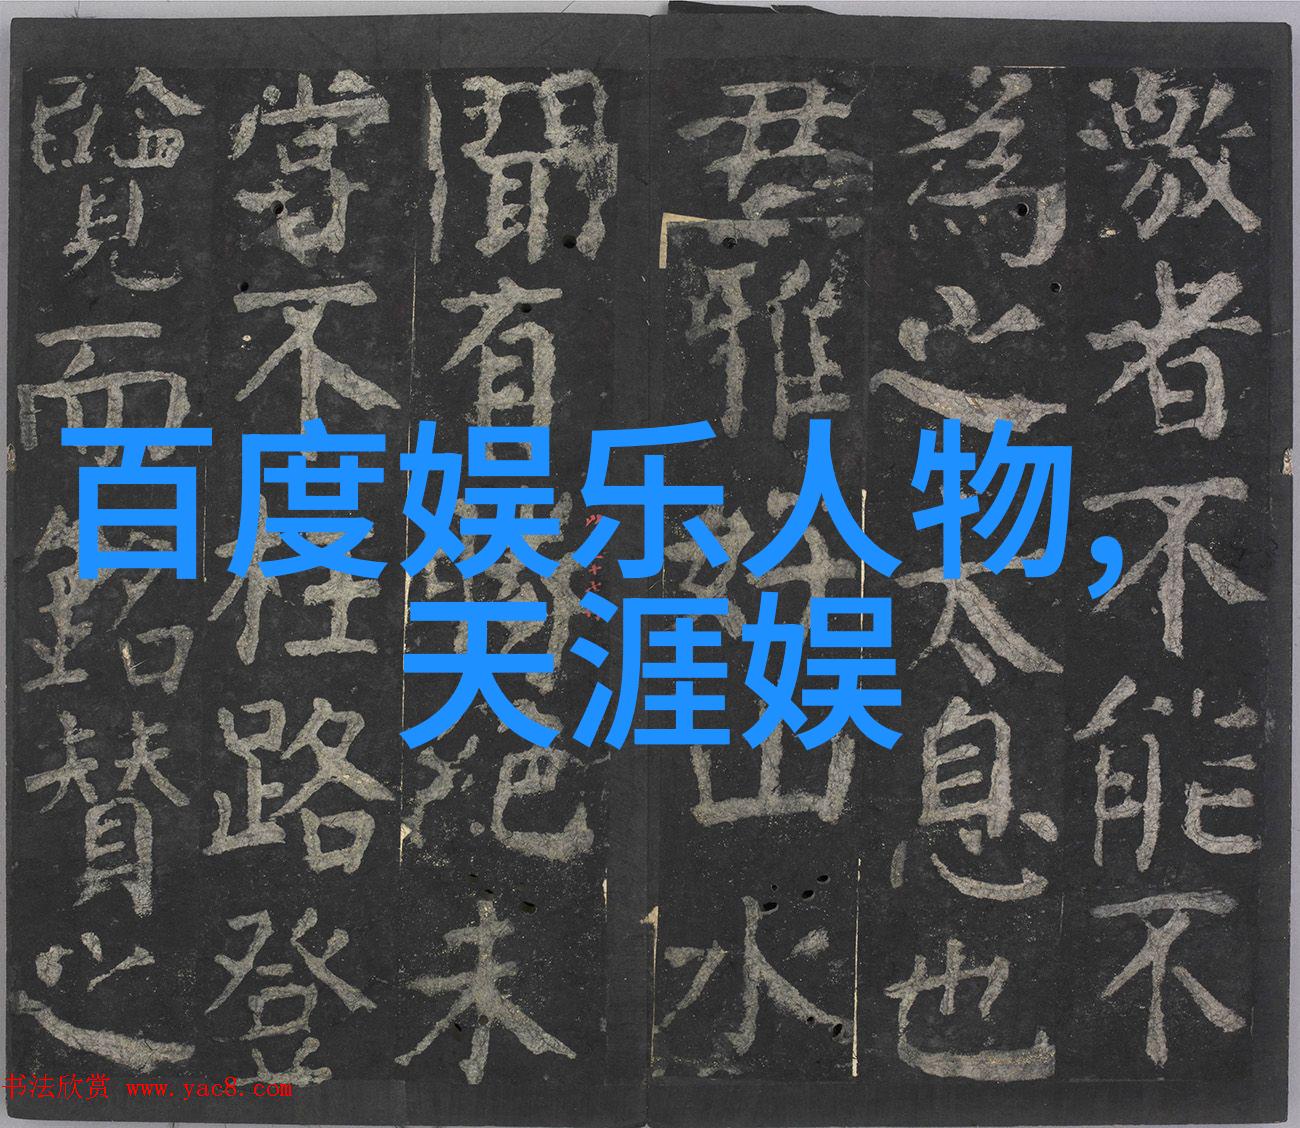 百度娱乐人物,
天涯娱
激者不能不
為之太息也
君雅好山水
聞有絕未
嘗不枉路登
覽而銘賛之
书法欣赏 www.yac8.com